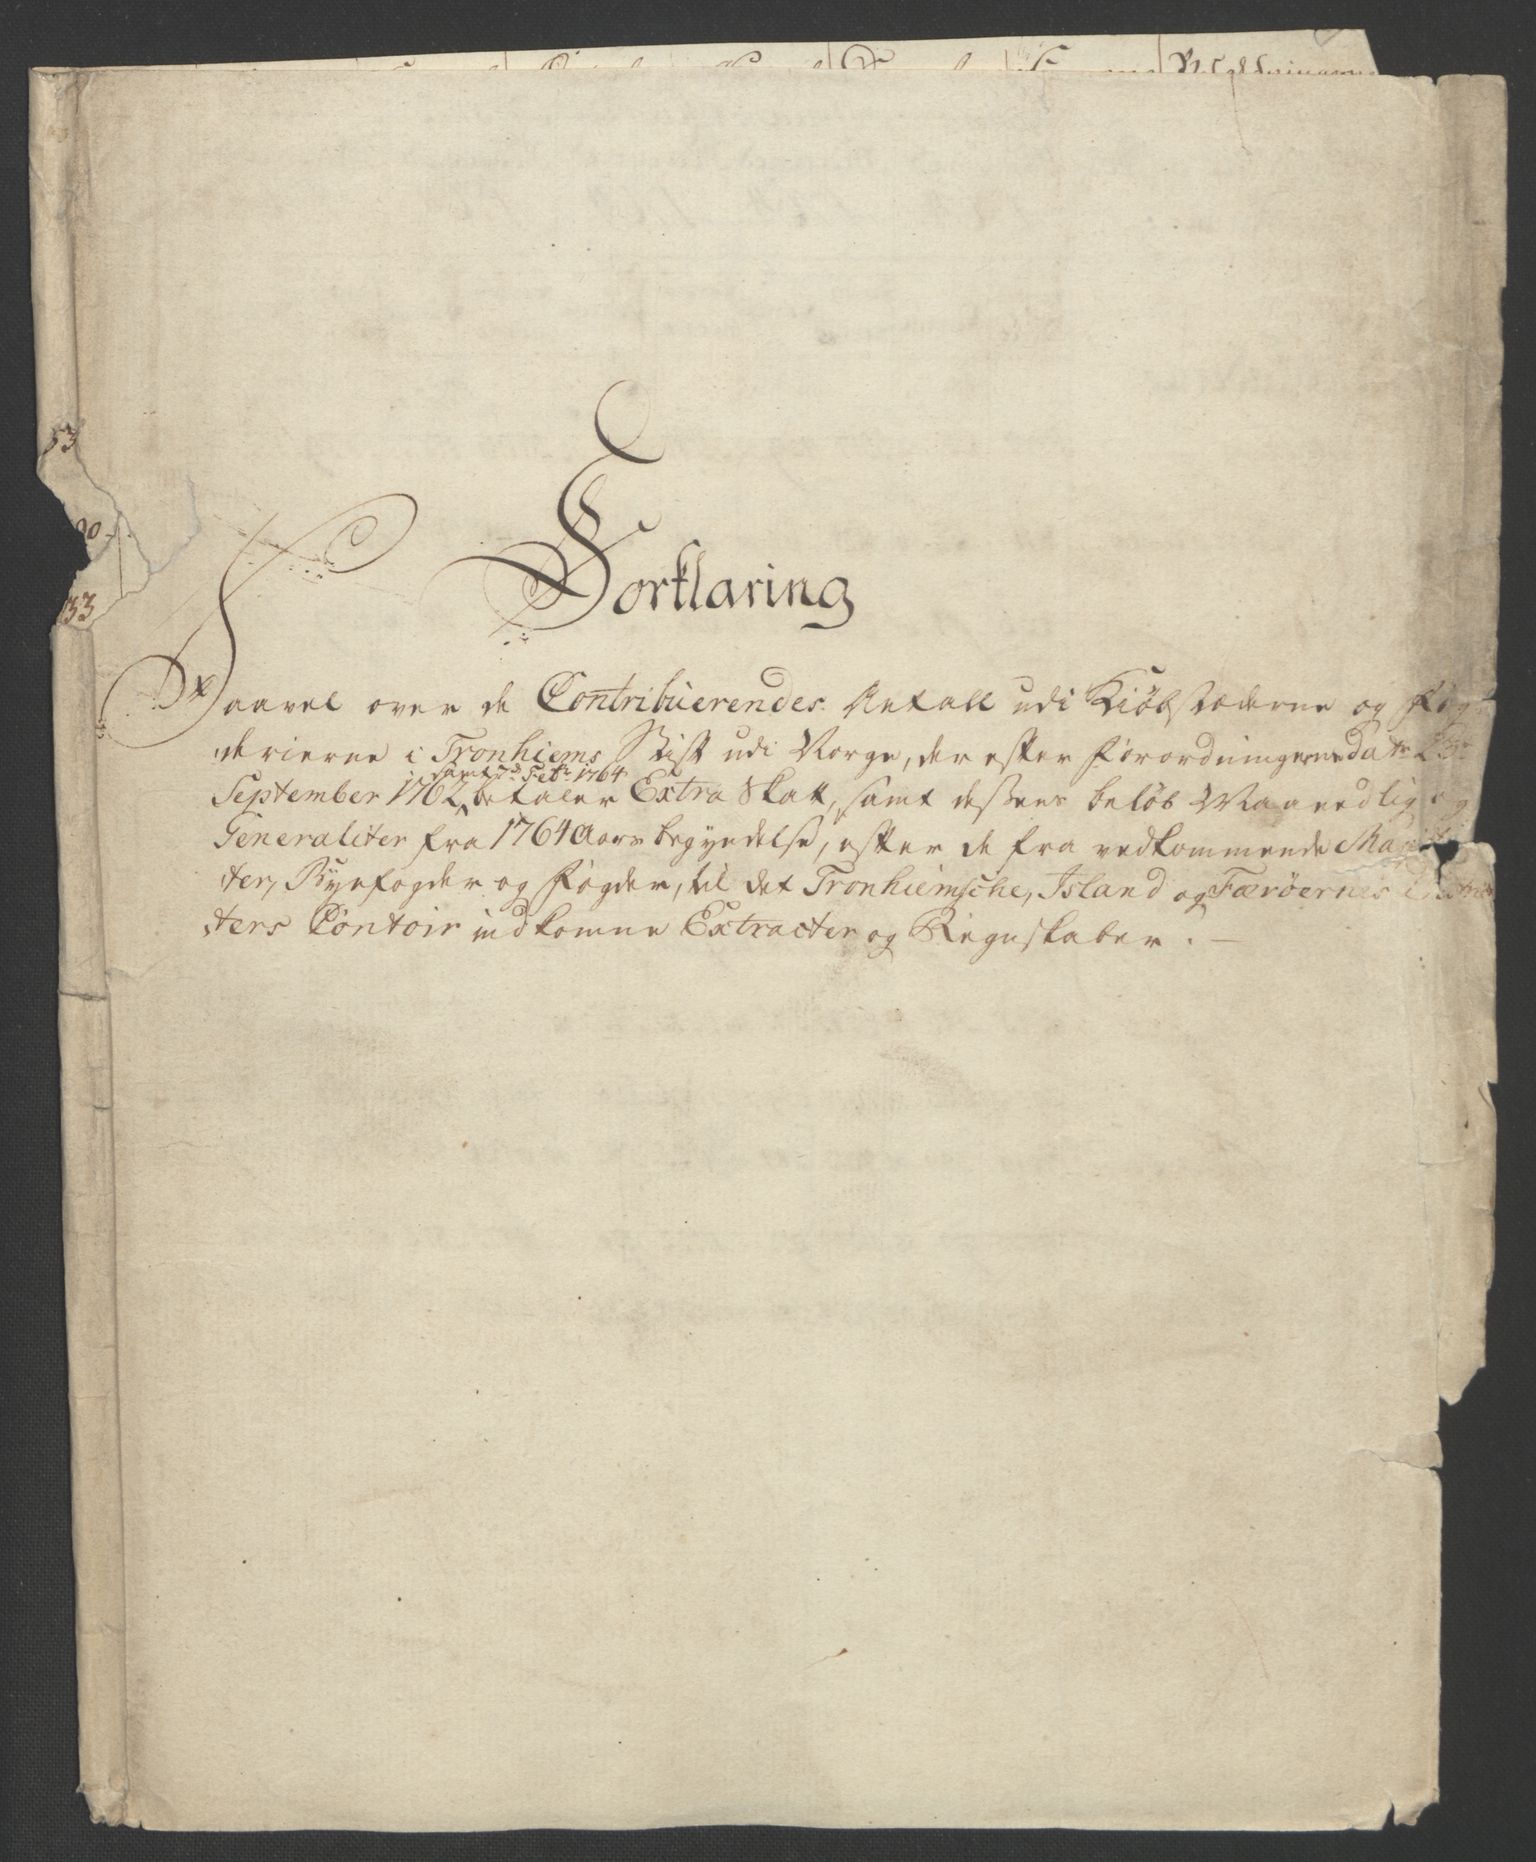 53
20
33
Forklaring
Saavel over de Contribuerendes Antall udi Kiøbstæderne og Fog-
derierne i Tronhiems Stift udi Norge, der efter Forordningerne Dat 23
samt 7d Feb 1764
September 1762 betaler Extra Skatt, samt dessens beløb Maanedlig og
Generaliter fra 1764 Aars begyndelse, efter de fra vedkommende
ter, Byefogder og Fogder, til det Tronhiemsche, Island og Færøernes
ters Contoir indkomne Extracter og Regnskaber. —